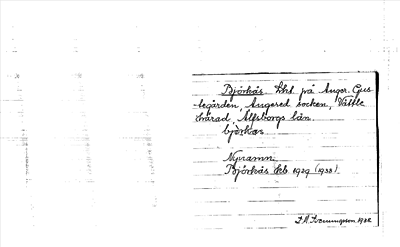 Björkås. Lht på Anger. Gus
tegården, Angered socken, Vättle
härad Älfsborgs län.
björkås
Nynamn.
Björkås Jrb 1929 (1933)
1932